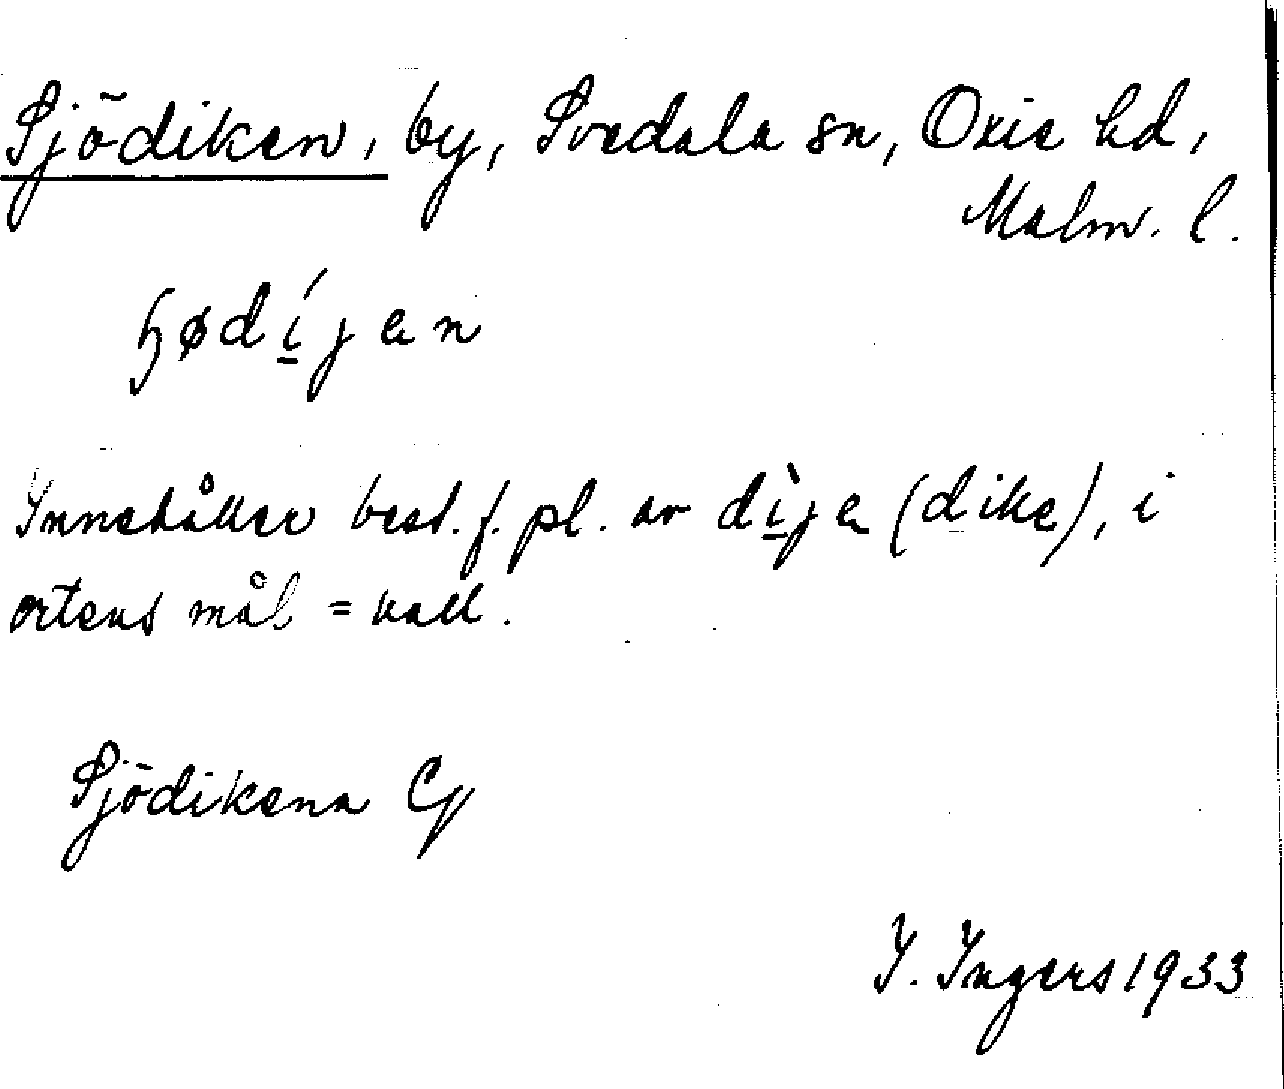 Sjödiken, by, Svedala sn, Oxie hd,
Malm. l.
ɧødíjen
Innehåller best. f. pl. av dìje (dike), i
ortens mål = vall.
Sjödikena Gf
I. Ingers 1933